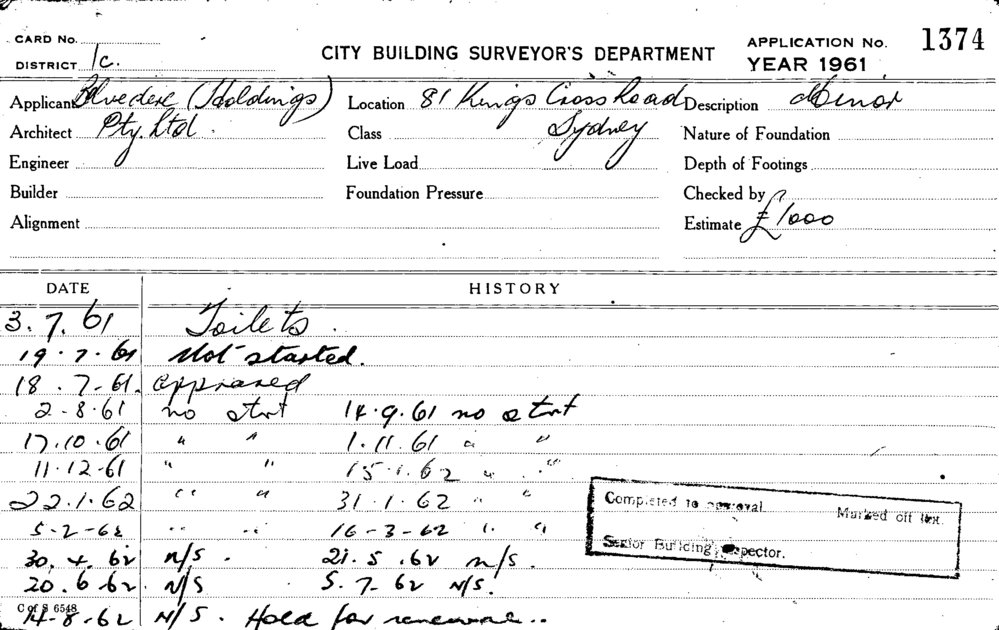 CARD No.
DISTRICT 1c.
CITY BUILDING SURVEYOR'S DEPARTMENT
APPLICATION No. 1374
YEAR 1961
Applicant Belvedere (Holdings) Location 81 Kings Cross Road Description Minor
Architect Pty. Ltd. Class Sydney Nature of Foundation
Engineer Live Load Depth of Footings
Builder Foundation Pressure Checked by
Alignment Estimate £1000
DATE HISTORY
3.7.61 Toilets.
19.7.61 Not started.
18.7-61. approved
2-8.61 no start 14.9.61 no start
17.10.61 " " 1.11.61 " "
11.12-61 " " 15.1.62 " "
22.1.62 " " 31.1.62 " "
5-2-62 " " 16-3-62 " "
30.4.62 N/S. 21.5.62 N/S.
20.6.62 N/S 5.7.62 N/S.
14-8.62 N/S. Hold for renewal..
C of S 6548
Completed to approval Marked off
Senior Building Inspector.